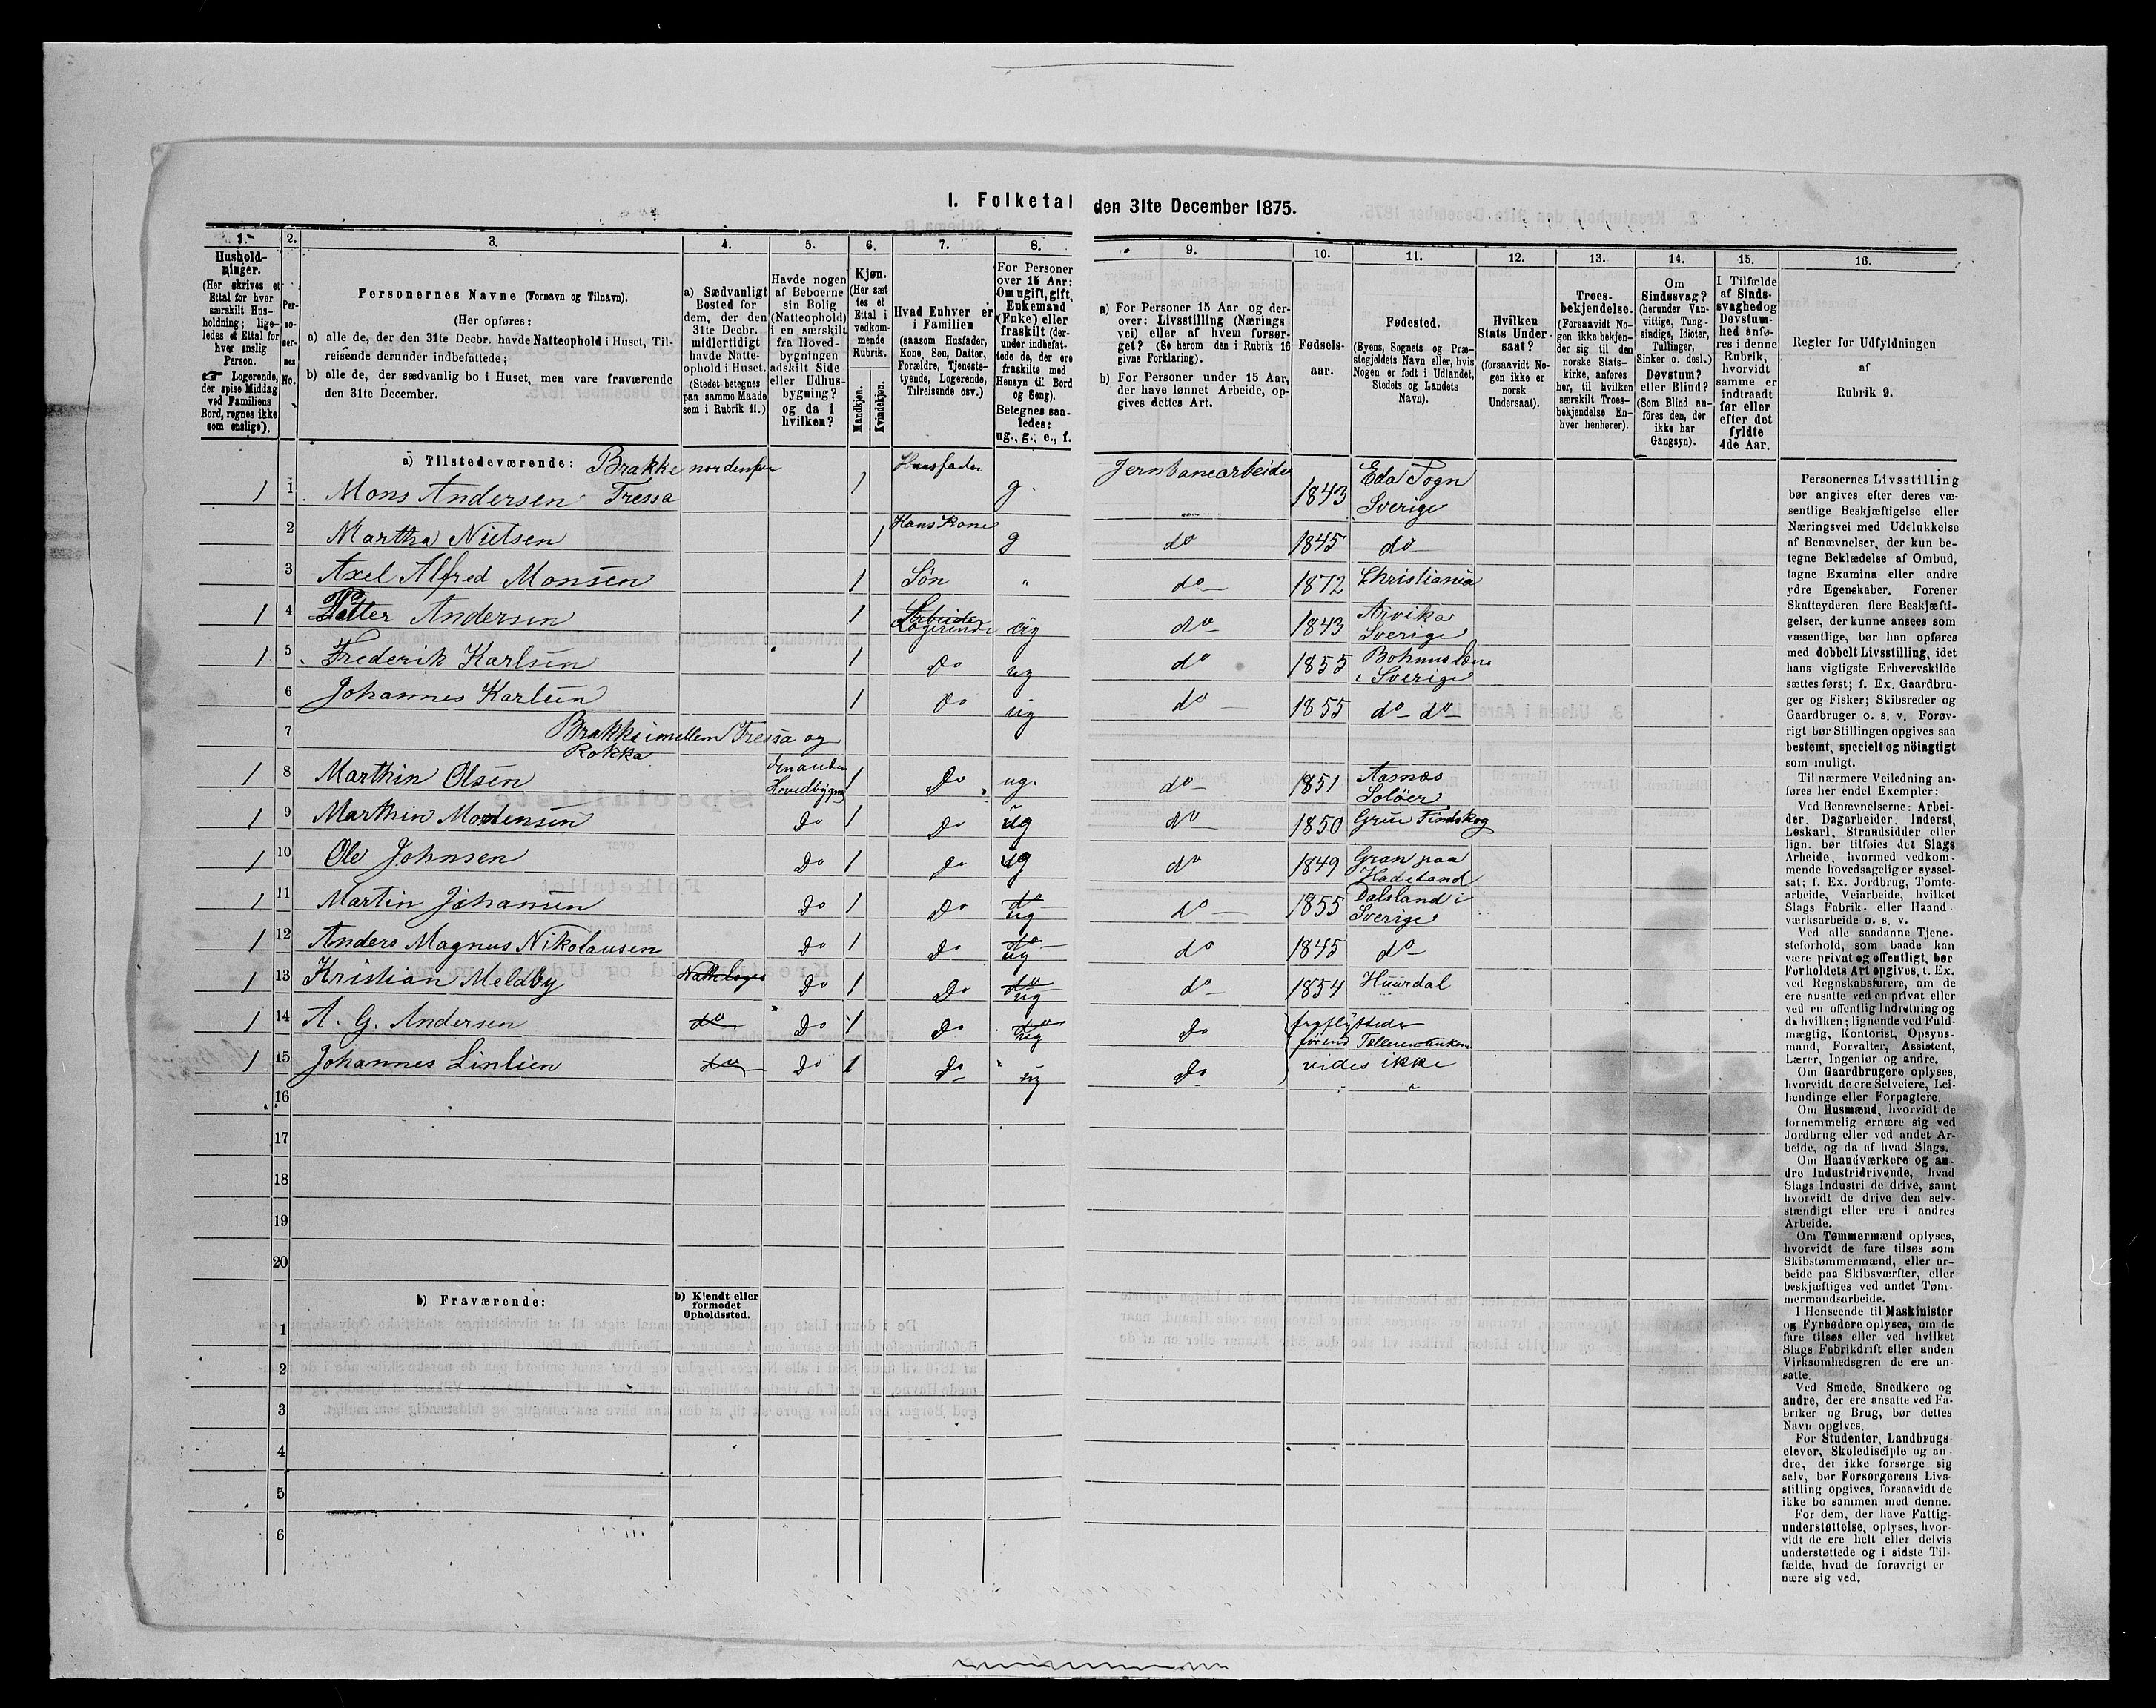 I. Folketal den 31te December 1875.
1.
2.
3.
4.
5.
6.
7.
8.
9.
10.
11.
12.
13.
14.
15.
16.
Hushold-
ninger.
(Her skrives et
Ettal for hver
særskilt Hus-
holdning; lige-
ledes et Ettal for
hver enslig
Person.
☞ Logerende,
der spise Middag
ved Familiens
Bord, regnes ikke
som enslige).
Per-
so-
ner-
nes
No.
Personernes Navne (Fornavn og Tilnavn).
(Her opføres:
a) alle de, der den 31te Decbr. havde Natteophold i Huset, Til-
reisende derunder indbefattede;
b) alle de, der sædvanlig bo i Huset, men vare fraværende
den 31te December.
a) Sædvanligt
Bosted for
dem, der den
31te Decbr.
midlertidigt
havde Natte-
ophold i Huset.
(Stedet betegnes
paa samme Maade
som i Rubrik 11.)
Havde nogen
af Beboerne
sin Bolig
(Natteophold)
i en særskilt
fra Hoved-
bygningen
adskilt Side
eller Udhus-
bygning?
og da i
hvilken?
Kjøn.
(Her sæt
tes et
Ettal i
vedkom-
mende
Rubrik.
Mandkjøn.
Kvindekjøn.
Hvad Enhver er
i Familien
(saasom Husfader,
Kone, Søn, Datter,
Forældre, Tjeneste-
tyende, Logerende,
Tilreisende osv.)
For Personer
over 15 Aar:
Om ugift, gift,
Enkemand
(Enke) eller
fraskilt (der-
under indbefat-
tede de, der ere
fraskilte med
Hensyn til Bord
og Seng).
Betegnes saa-
ledes:
ug., g., e., f.
a) For Personer 15 Aar og der-
over: Livsstilling (Nærings
vei) eller af hvem forsør-
get? (Se herom den i Rubrik 16
givne Forklaring).
b) For Personer under 15 Aar,
der have lønnet Arbeide, op-
gives dettes Art.
Fødsels-
aar.
Fødested.
(Byens, Sognets og Præ-
stegjeldets Navn eller, hvis
Nogen er født i Udlandet,
Stedets og Landets
Navn).
Hvilken
Stats Under-
saat?
(forsaavidt No-
gen ikke er
norsk
Undersaat).
Troes-
bekjendelse.
(Forsaavidt No-
gen ikke bekjen-
der sig til den
norske Stats-
kirke, anføres
her, til hvilken
særskilt Troes-
bekjendelse En-
hver henhører).
Om
Sindssvag?
(herunder Van-
vittige, Tung-
sindige, Idioter,
Tullinger,
Sinker o. desl.)
Døvstum?
eller Blind?
(Som Blind an-
föres den, der
ikke har
Gangsyn).
I Tilfælde
af Sinds-
svaghed og
Døvstum-
hed anfø-
res i denne
Rubrik,
hvorvidt
samme er
indtraadt
før eller
efter det
fyldte
4de Aar.
Regler for Udfyldningen
af
Rubrik 9.
a) Tilstedeværende: Brakke nordenfor
1 1 Mons Andersen Tressa 1 Huusfader g. Jernbanearbeider 1843 Eda Sogn
Sverige
2 Martha Nielsen 1 Hans Kone g do 1845 do
3 Axel Alfred Monsen 1 Søn " do 1872 Christiania
1 4 Petter Andersen 1 Arbeider
Logerende ug do 1843 Arvika
Sverige
1 5 Frederik Karlsen 1 Do ug do 1855 Bohuuslæn
i Sverige
6 Johannes Karlsen 1 Do ug do 1855 do do
7 Brakke imellem Tressa og
Rokka
1 8 Marthin Olsen Hovedbygng 1 Do ug. do 1851 Aasnæs
Soløer
1 9 Marthin Mortensen Do 1 Do ug do 1850 Grue Findskog
1 10 Ole Johnsen Do 1 Do ug do 1849 Gran paa
Hadeland
1 11 Martin Johansen Do 1 Do do
ug do 1855 Dalsland i
Sverige
1 12 Anders Magnus Nikolausen Do 1 Do do
ug do 1845 do
1 13 Kristian Meldby Do 1 Do do
ug do 1854 Huurdal
1 14 A. G. Andersen do Do 1 Do do
ug Do fraflyttede
førend
1 15 Johannes Linlien do Do 1 Do ug Do vides ikke
16
17
18
19
20
b) Fraværende:
b) Kjendt eller
formodet
Opholdssted.
1
2
3
4
5
6
Personernes Livsstilling
bør angives efter deres væ-
sentlige Beskjæftigelse eller
Næringsvei med Udelukkelse
af Benævnelser, der kun be-
tegne Beklædelse af Ombud,
tagne Examina eller andre
ydre Egenskaber. Forener
Skatteyderen flere Beskjæfti-
gelser, der kunne ansees som
væsentlige, bør han opføres
med dobbelt Livsstilling, idet
hans vigtigste Erhvervskilde
sættes først; f. Ex. Gaardbru-
ger og Fisker; Skibsreder og
Gaardbruger o. s. v. Forøv-
rigt bør Stillingen opgives saa
bestemt, specielt og nöiagtigt
som muligt.
Til nærmere Veiledning an-
føres her endel Exempler:
Ved Benævnelserne: Arbei-
der, Dagarbeider, Inderst,
Løskarl, Strandsidder eller
lign. bør tilføies det Slags
Arbeide, hvormed vedkom-
mende hovedsagelig er syssel-
sat; f. Ex. Jordbrug, Tomte-
arbeide, Veiarbeide, hvilket
Slags Fabrik- eller Haand-
værksarbeide o. s. v.
Ved alle saadanne Tjene-
steforhold, som baade kan
være privat og offentligt, bør
Forholdets Art opgives, t. Ex.
ved Regnskabsførere, om de
ere ansatte ved en privat eller
ved en offentlig Indretning og
da hvilken; lignende ved Fuld-
mægtig, Kontorist, Opsyns-
mand, Forvalter, Assistent,
Lærer, Ingeniør og andre.
Om Gaardbrugere oplyses,
hvorvidt de ere Selveiere, Lei-
lændinge eller Forpagtere.
Om Husmænd, hvorvidt de
fornemmelig ernære sig ved
Jordbrug eller ved andet Ar-
beide, og da af hvad Slags.
Om Haandværkere og an-
dre Industridrivende, hvad
Slags Industri de drive, samt
hvorvidt de drive den selv-
stændigt eller ere i andres
Arbeide.
Om Tømmermænd oplyses,
hvorvidt de fare tilsøs som
Skibstømmermænd, eller ar-
beide paa Skibsværfter, eller
beskjæftiges ved andet Tøm-
mermandsarbeide.
I Henseende til Maskinister
og Fyrbødere oplyses, om de
fare tilsøs eller ved hvilket
Slags Fabrikdrift eller anden
Virksomhedsgren de ere an-
satte.
Ved Smede, Snedkere og
andre, der ere ansatte ved Fa-
briker og Brug, bør dettes
Navn opgives.
For Studenter, Landbrugs-
elever, Skoledisciple og an-
dre, der ikke forsørge sig
selv, bør Forsørgerens Livs-
stilling opgives, forsaavidt de
ikke bo sammen med denne.
For dem, der have Fattig-
understøttelse, oplyses, hvor-
vidt de ere helt eller delvis
understøttede og i sidste Til-
fælde, hvad de forøvrigt er-
nære sig ved.